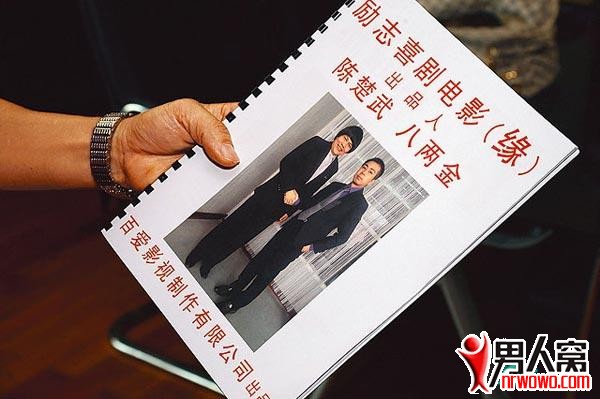 励志喜剧电影(缘)
出品人
陈楚武 八两金
百爱影视制作有限公司出品
男人窝
nrwowo.com